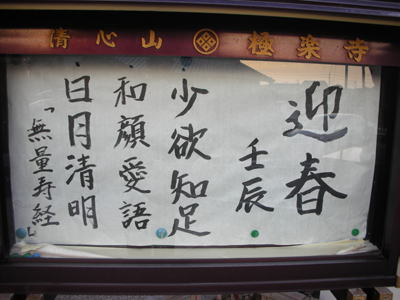 清心山 極楽寺
迎春
壬辰
少欲知足
和顔愛語
日月清明
「無量寿経」